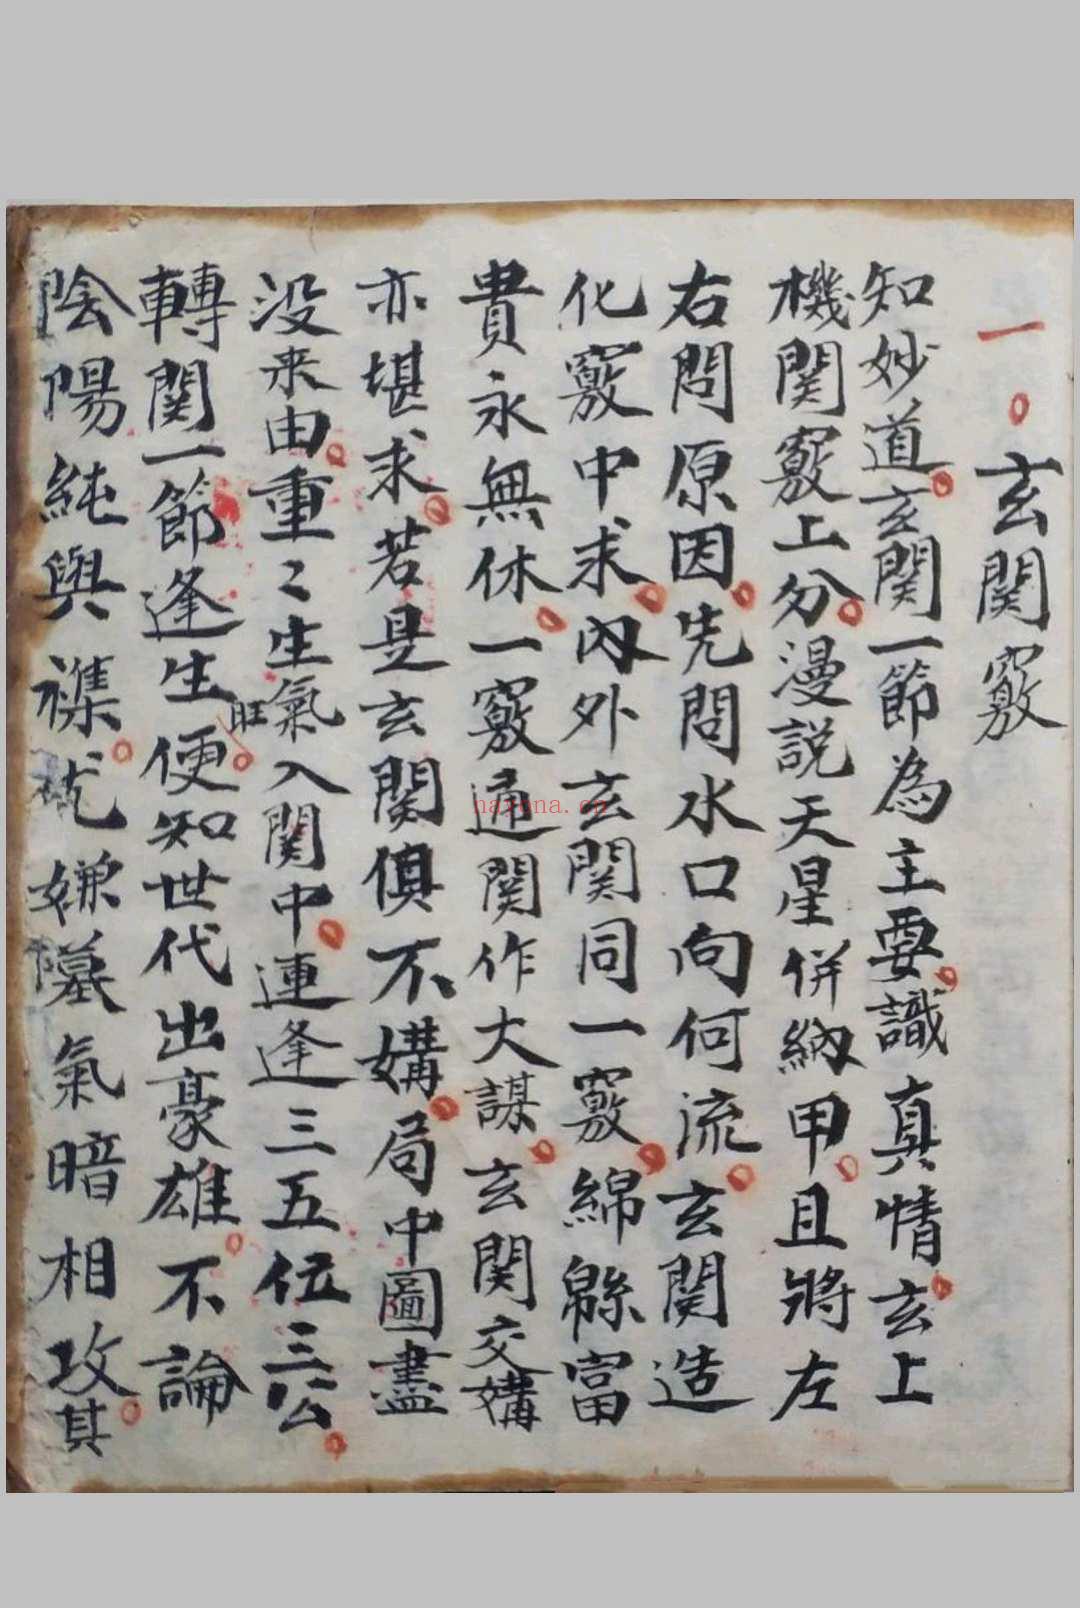 一 玄関竅
知妙道玄関一節為主要識真情玄上
機関竅上分漫説天星併納甲且將左
右問原因先問水口向何流玄関造
化竅中求內外玄関同一竅綿綿富
貴永無休一竅通関作大謀玄関交媾
亦堪求若是玄関俱不媾局中圖盡
没来由重〻生氣入関中連逢三五位三公
轉関一節逢生旺便知世代出豪雄不論
陰陽純與襍尤嫌墓氣暗相攻其
nayona.cn